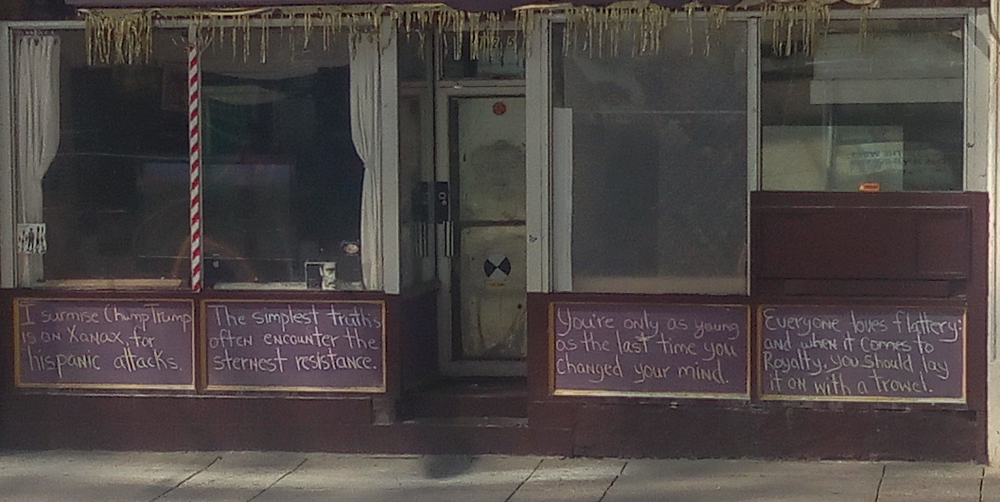 I surmise ChumpTrump
is on Xanax, for
hispanic attacks.
The simplest truths
often encounter the
sternest resistance.
You're only as young
as the last time you
changed your mind.
Everyone loves flattery:
and when it comes to
Royalty, you should lay
it on with a trowel.